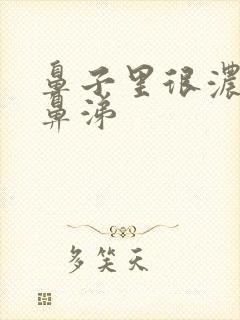 鼻子里很浓
鼻涕
多笑天